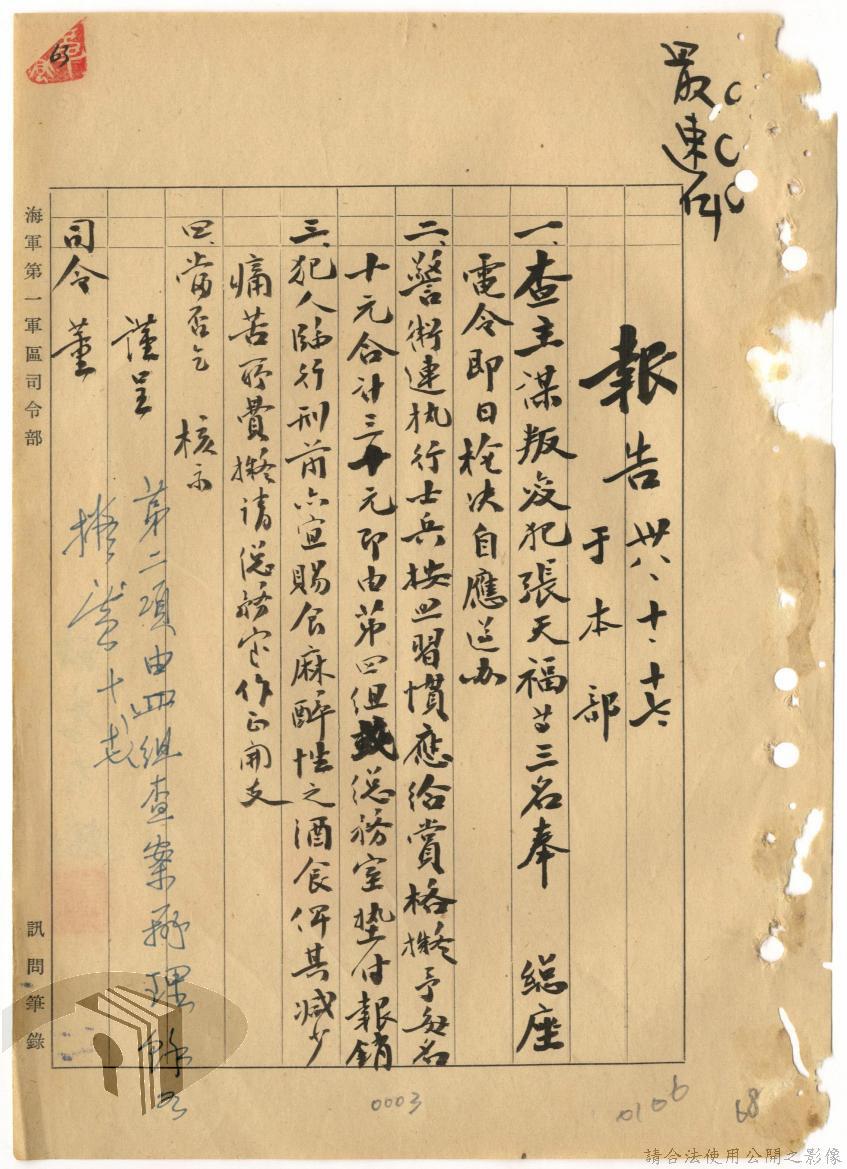 最速件
報告 卅八、十、十七、
于本部
一、查主謀叛变犯張天福等三名奉 總座
電令即日槍决自應遵办
二、警衛連执行士兵按照習慣應給賞格擬予每名
十元合計三十元即由第四組或总務室垫付報銷
三、犯人臨行刑前亦宜賜食麻醉性之酒食俾其减少
痛苦所費擬請总務室作正開支
四、當否乞 核示
謹呈
司令 董
第二項由四組查案辦理餘如
擬 十
海軍第一軍區司令部
訊問筆錄
63
0003
0106
68
請合法使用公開之影像